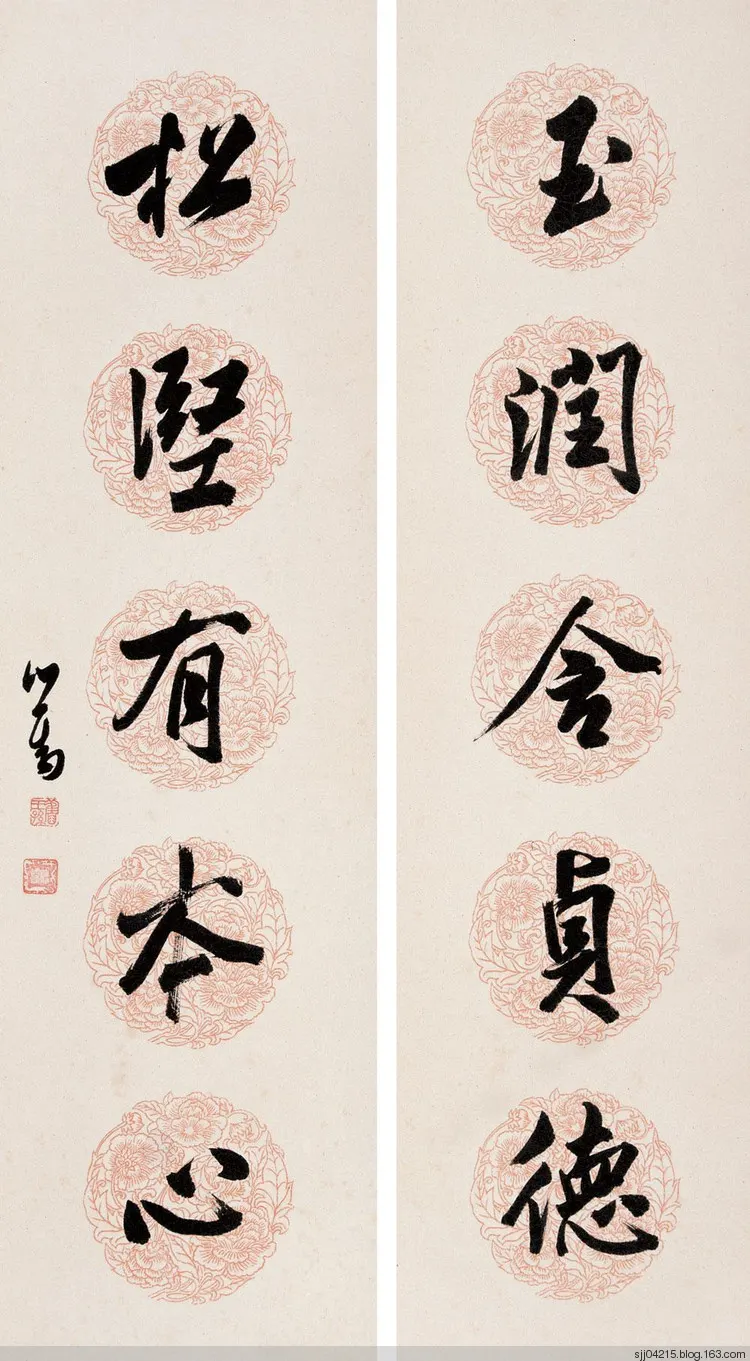 玉潤含貞德
松堅有本心
心畬
sjj04215.blog.163.com